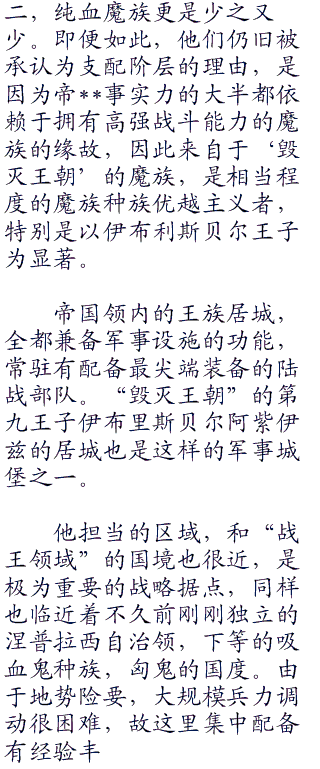 二，纯血魔族更是少之又
少。即便如此，他们仍旧被
承认为支配阶层的理由，是
因为帝**事实力的大半都依
赖于拥有高强战斗能力的魔
族的缘故，因此来自于‘毁
灭王朝’的魔族，是相当程
度的魔族种族优越主义者，
特别是以伊布利斯贝尔王子
为显著。
帝国领内的王族居城，
全都兼备军事设施的功能，
常驻有配备最尖端装备的陆
战部队。“毁灭王朝”的第
九王子伊布里斯贝尔阿紫伊
兹的居城也是这样的军事城
堡之一。
他担当的区域，和“战
王领域”的国境也很近，是
极为重要的战略据点，同样
也临近着不久前刚刚独立的
涅普拉西自治领，下等的吸
血鬼种族，匈鬼的国度。由
于地势险要，大规模兵力调
动很困难，故这里集中配备
有经验丰